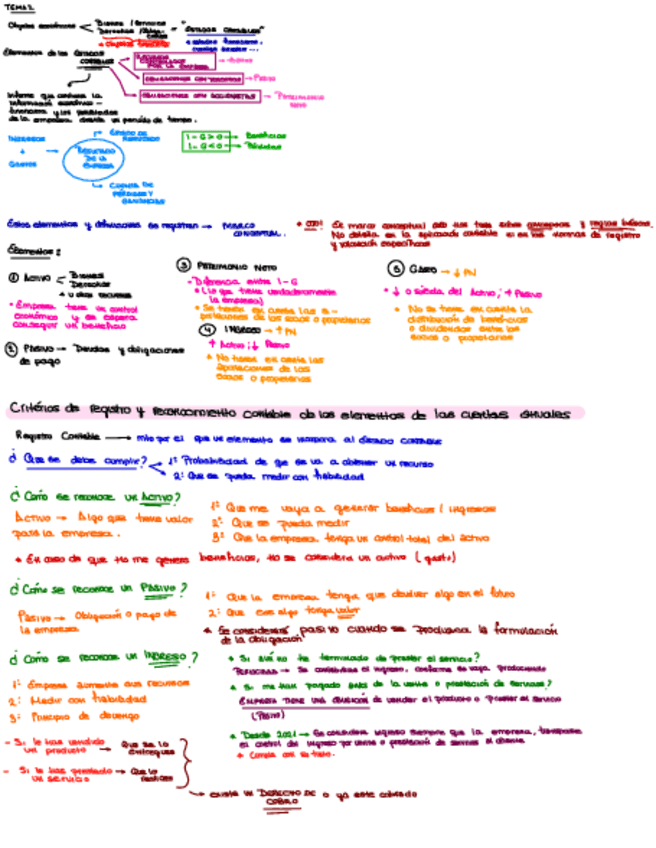 TEMA 2
Objetos económicos
Bienes / Servicios
Derechos /
"ESTADOS CONTABLES"
+ Objetos
Elementos de los Estados
CONTABLES
RECURSOS
CONTROLADOS
POR LA EMPRESA
→ Activo
OBLIGACIONES CON TERCEROS → Pasivo
OBLIGACIONES CON → PATRIMONIO
NETO
Informe que contiene la
información económico-
financiera y los resultados
de la empresa durante un período de tiempo.
INGRESOS
+
GASTOS
RESULTADO
DE LA
EMPRESA
→ CUENTA DE
PÉRDIDAS Y
GANANCIAS
I - G > 0 → Beneficios
I - G < 0 → Pérdidas
Estos elementos y definiciones se registran → MARCO
CONCEPTUAL.
El marco conceptual solo nos trata sobre conceptos y reglas básicas.
No detalla en la aplicación contable ni en las normas de registro
y valoración específicas
Elementos:
① Activo
Bienes
Derechos
+ u otros recursos
• Empresa tiene un control
económico y se espera
conseguir un beneficio
② Pasivo → Deudas y obligaciones
de pago
③ PATRIMONIO NETO
• Diferencia entre
• (Lo que tiene verdaderamente
la empresa)
• Se tienen en cuenta las a-
portaciones de los socios o propietarios
④ INGRESO → ↑ PN
↑ Activo; ↓ Pasivo
• No tienen en cuenta las
aportaciones de los
socios o propietarios
⑤ GASTO → ↓ PN
• ↓ o salida del Activo; ↑ Pasivo
• No se tiene en cuenta la
distribución de beneficios
o dividendos entre los
socios o propietarios
Criterios de registro y reconocimiento contable de los elementos de las cuentas anuales
Registro Contable → por el que un elemento se incorpora al estado contable
¿Que se debe cumplir?
1º: Probabilidad de que se va a obtener un recurso
2º: Que se pueda medir con fiabilidad
¿Cómo se reconoce un Activo?
Activo → Algo que tiene valor
para la empresa.
1º Que me vaya a generar beneficios / ingresos
2º Que se pueda medir
3º Que la empresa tenga un control total del activo
* En caso de que no me genere beneficios, no se considera un activo (gasto)
¿Cómo se reconoce un PASIVO?
Pasivo → Obligación o pago de
la empresa
1º: Que la empresa tenga que devolver algo en el futuro
2º: Que ese algo tenga valor
* Se considerará pasivo cuando se produzca la formulación
de la obligación
¿Cómo se reconoce un INGRESO?
1º: Empresa aumente sus recursos
2º: Medir con fiabilidad
3º: Principio de devengo
* Si aún no he terminado de prestar el servicio?
→ Se contabiliza el ingreso, conforme se vaya produciendo
* Si me han pagado antes de la venta o prestación de servicios?
EMPRESA TIENE UNA OBLIGACIÓN de vender el producto o prestar el servicio
(PASIVO)
* Desde 2021 → Se considera ingreso siempre que la empresa, transpase
el control del ingreso por venta o prestación de servicios al cliente
- Si le has vendido
un producto → Que se lo
entregues
- Si le has prestado
un servicio → Que lo
realices
→ existe un DERECHO DE
COBRO
o ya esté cobrado